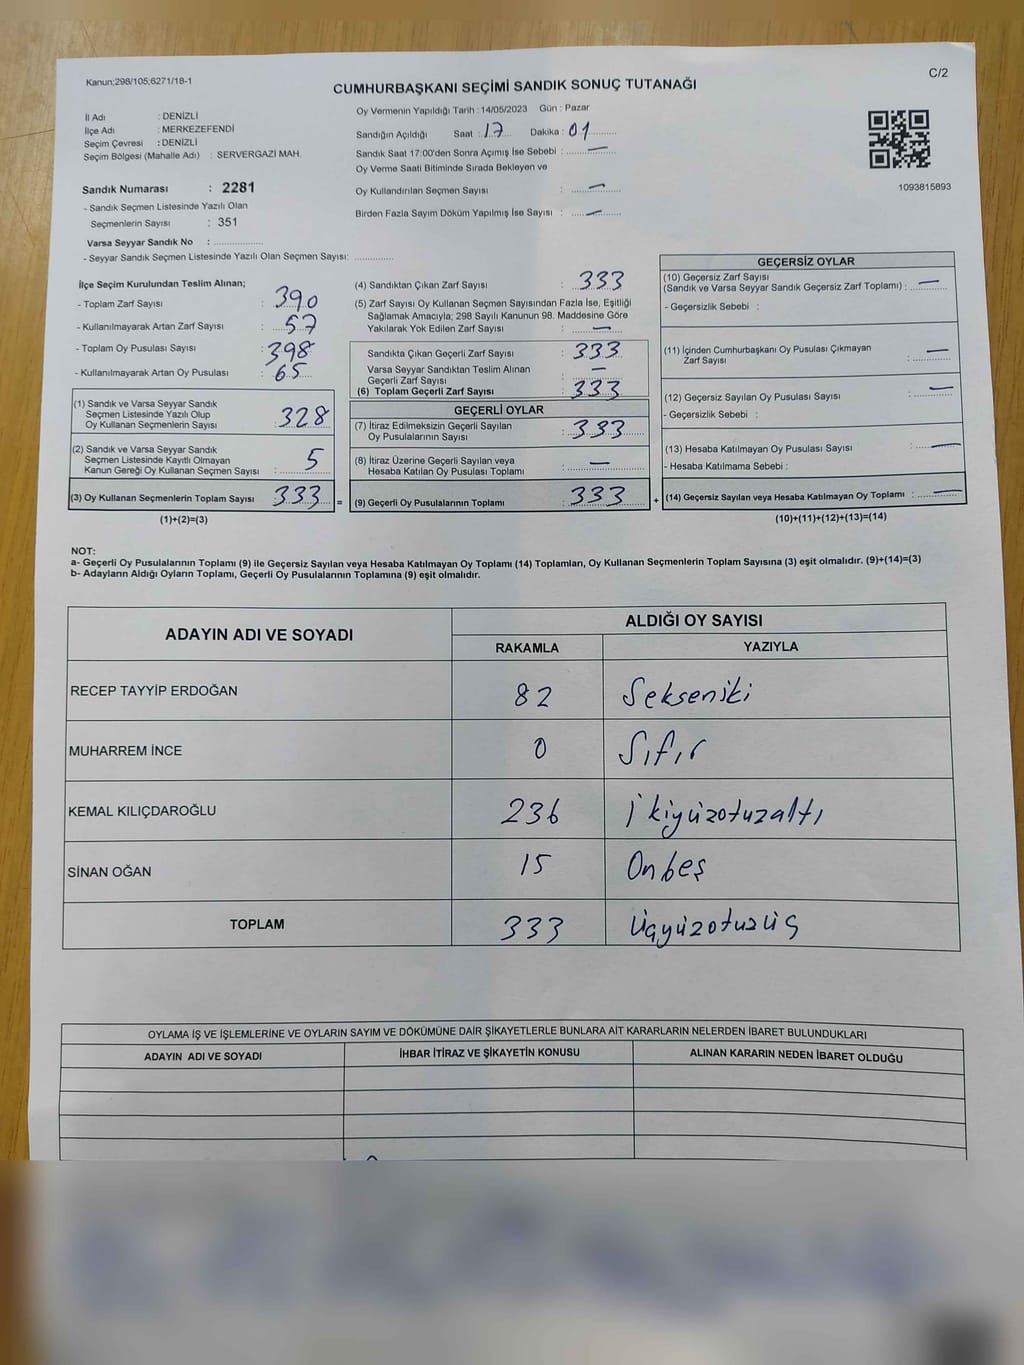 Kanun;298/105,6271/18-1
C/2
CUMHURBAŞKANI SEÇİMİ SANDIK SONUÇ TUTANAĞI
İl Adı : DENİZLİ
İlçe Adı : MERKEZEFENDİ
Seçim Çevresi : DENİZLİ
Seçim Bölgesi (Mahalle Adı) : SERVERGAZİ MAH.
Sandık Numarası : 2281
- Sandık Seçmen Listesinde Yazılı Olan
Seçmenlerin Sayısı : 351
Varsa Seyyar Sandık No : ..................
- Seyyar Sandık Seçmen Listesinde Yazılı Olan Seçmen Sayısı: .............
Oy Vermenin Yapıldığı Tarih : 14/05/2023 Gün : Pazar
Sandığın Açıldığı Saat : 17 Dakika : 01
Sandık Saat 17:00'den Sonra Açımış İse Sebebi : —
Oy Verme Saati Bitiminde Sırada Bekleyen ve
Oy Kullandırılan Seçmen Sayısı : —
Birden Fazla Sayım Döküm Yapılmış İse Sayısı : —
1093815893
İlçe Seçim Kurulundan Teslim Alınan;
- Toplam Zarf Sayısı : 390
- Kullanılmayarak Artan Zarf Sayısı : 57
- Toplam Oy Pusulası Sayısı : 398
- Kullanılmayarak Artan Oy Pusulası : 65
(1) Sandık ve Varsa Seyyar Sandık
Seçmen Listesinde Yazılı Olup
Oy Kullanan Seçmenlerin Sayısı : 328
(2) Sandık ve Varsa Seyyar Sandık
Seçmen Listesinde Kayıtlı Olmayan
Kanun Gereği Oy Kullanan Seçmen Sayısı : 5
(3) Oy Kullanan Seçmenlerin Toplam Sayısı : 333 =
(1)+(2)=(3)
(4) Sandıktan Çıkan Zarf Sayısı : 333
(5) Zarf Sayısı Oy Kullanan Seçmen Sayısından Fazla İse, Eşitliği
Sağlamak Amacıyla; 298 Sayılı Kanunun 98. Maddesine Göre
Yakılarak Yok Edilen Zarf Sayısı : —
Sandıkta Çıkan Geçerli Zarf Sayısı : 333
Varsa Seyyar Sandıktan Teslim Alınan
Geçerli Zarf Sayısı : —
(6) Toplam Geçerli Zarf Sayısı : 333
GEÇERLİ OYLAR
(7) İtiraz Edilmeksizin Geçerli Sayılan
Oy Pusulalarının Sayısı : 333
(8) İtiraz Üzerine Geçerli Sayılan veya
Hesaba Katılan Oy Pusulası Toplamı : —
(9) Geçerli Oy Pusulalarının Toplamı : 333 +
GEÇERSİZ OYLAR
(10) Geçersiz Zarf Sayısı
(Sandık ve Varsa Seyyar Sandık Geçersiz Zarf Toplamı) : —
- Geçersizlik Sebebi :
(11) İçinden Cumhurbaşkanı Oy Pusulası Çıkmayan
Zarf Sayısı : —
(12) Geçersiz Sayılan Oy Pusulası Sayısı : —
- Geçersizlik Sebebi :
(13) Hesaba Katılmayan Oy Pusulası Sayısı : —
- Hesaba Katılmama Sebebi :
(14) Geçersiz Sayılan veya Hesaba Katılmayan Oy Toplamı : —
(10)+(11)+(12)+(13)=(14)
NOT:
a- Geçerli Oy Pusulalarının Toplamı (9) ile Geçersiz Sayılan veya Hesaba Katılmayan Oy Toplamı (14) Toplamları, Oy Kullanan Seçmenlerin Toplam Sayısına (3) eşit olmalıdır. (9)+(14)=(3)
b- Adayların Aldığı Oyların Toplamı, Geçerli Oy Pusulalarının Toplamına (9) eşit olmalıdır.
ADAYIN ADI VE SOYADI
ALDIĞI OY SAYISI
RAKAMLA YAZIYLA
RECEP TAYYİP ERDOĞAN 82 Sekseniki
MUHARREM İNCE 0 Sıfır
KEMAL KILIÇDAROĞLU 236 İkiyüzotuzaltı
SİNAN OĞAN 15 Onbeş
TOPLAM 333 Üçyüzotuzüç
OYLAMA İŞ VE İŞLEMLERİNE VE OYLARIN SAYIM VE DÖKÜMÜNE DAİR ŞİKAYETLERLE BUNLARA AİT KARARLARIN NELERDEN İBARET BULUNDUKLARI
ADAYIN ADI VE SOYADI İHBAR İTİRAZ VE ŞİKAYETİN KONUSU ALINAN KARARIN NEDEN İBARET OLDUĞU